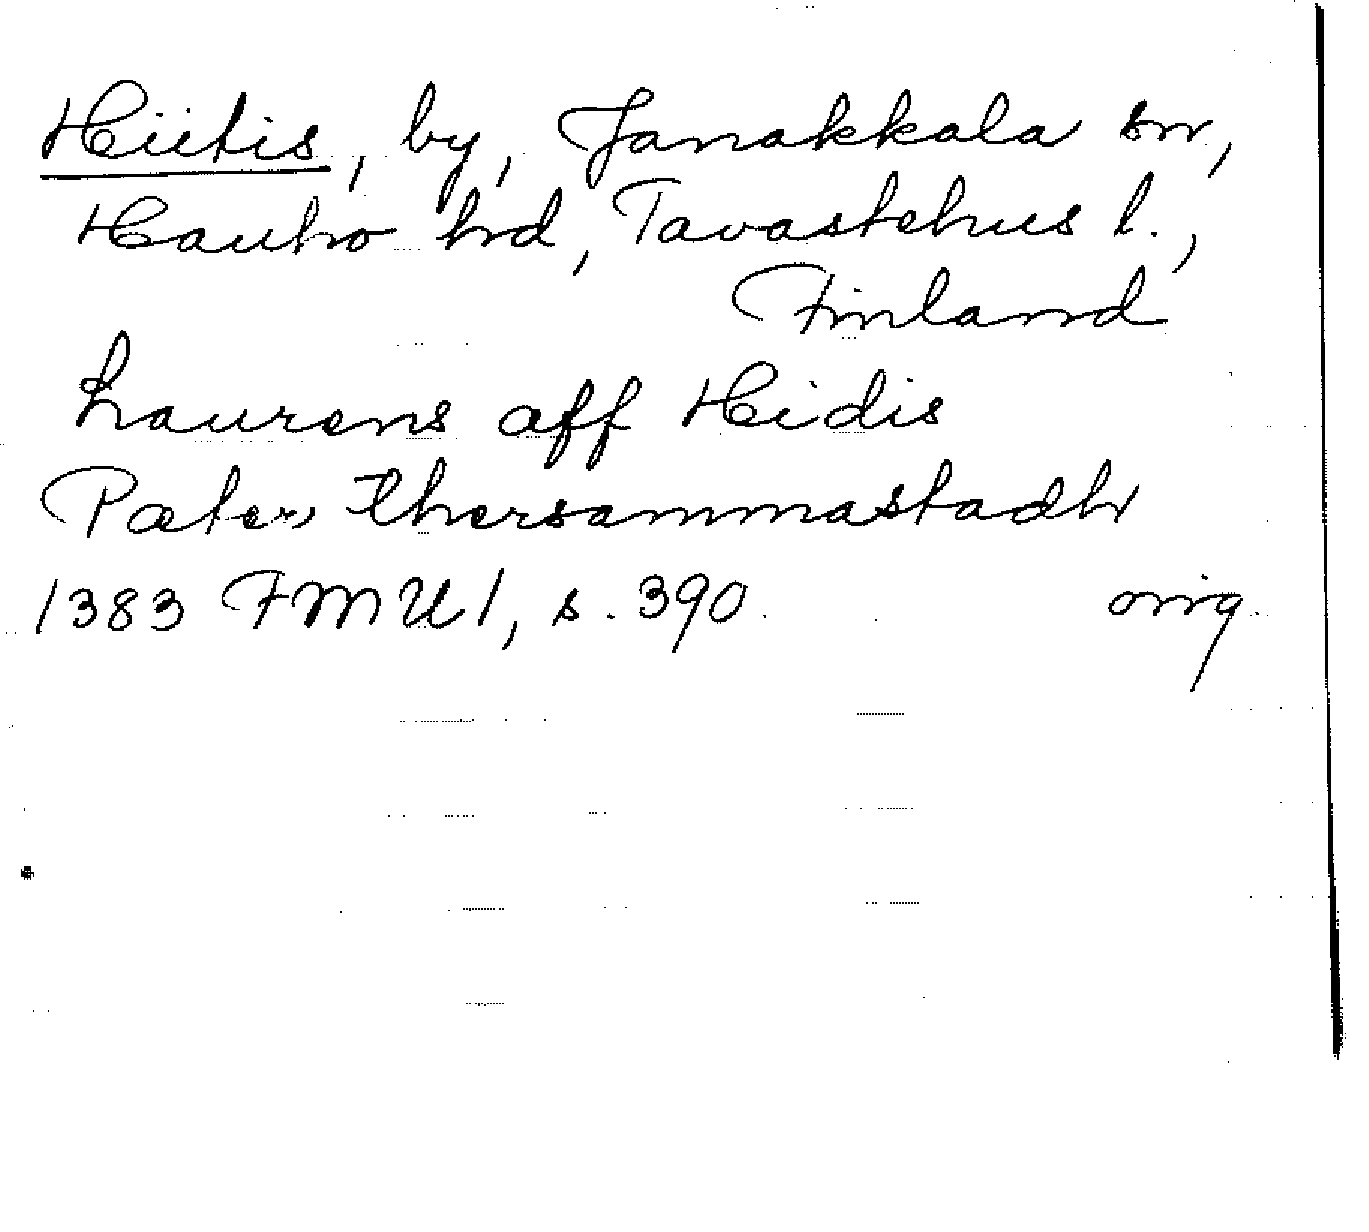 Hiitis, by, Janakkala sn,
Hauho hrd, Tavastehus l.,
Finland
Laurens aff Hidis
Pæter Thersammastadh
1383 FMU 1, s. 390. orig.